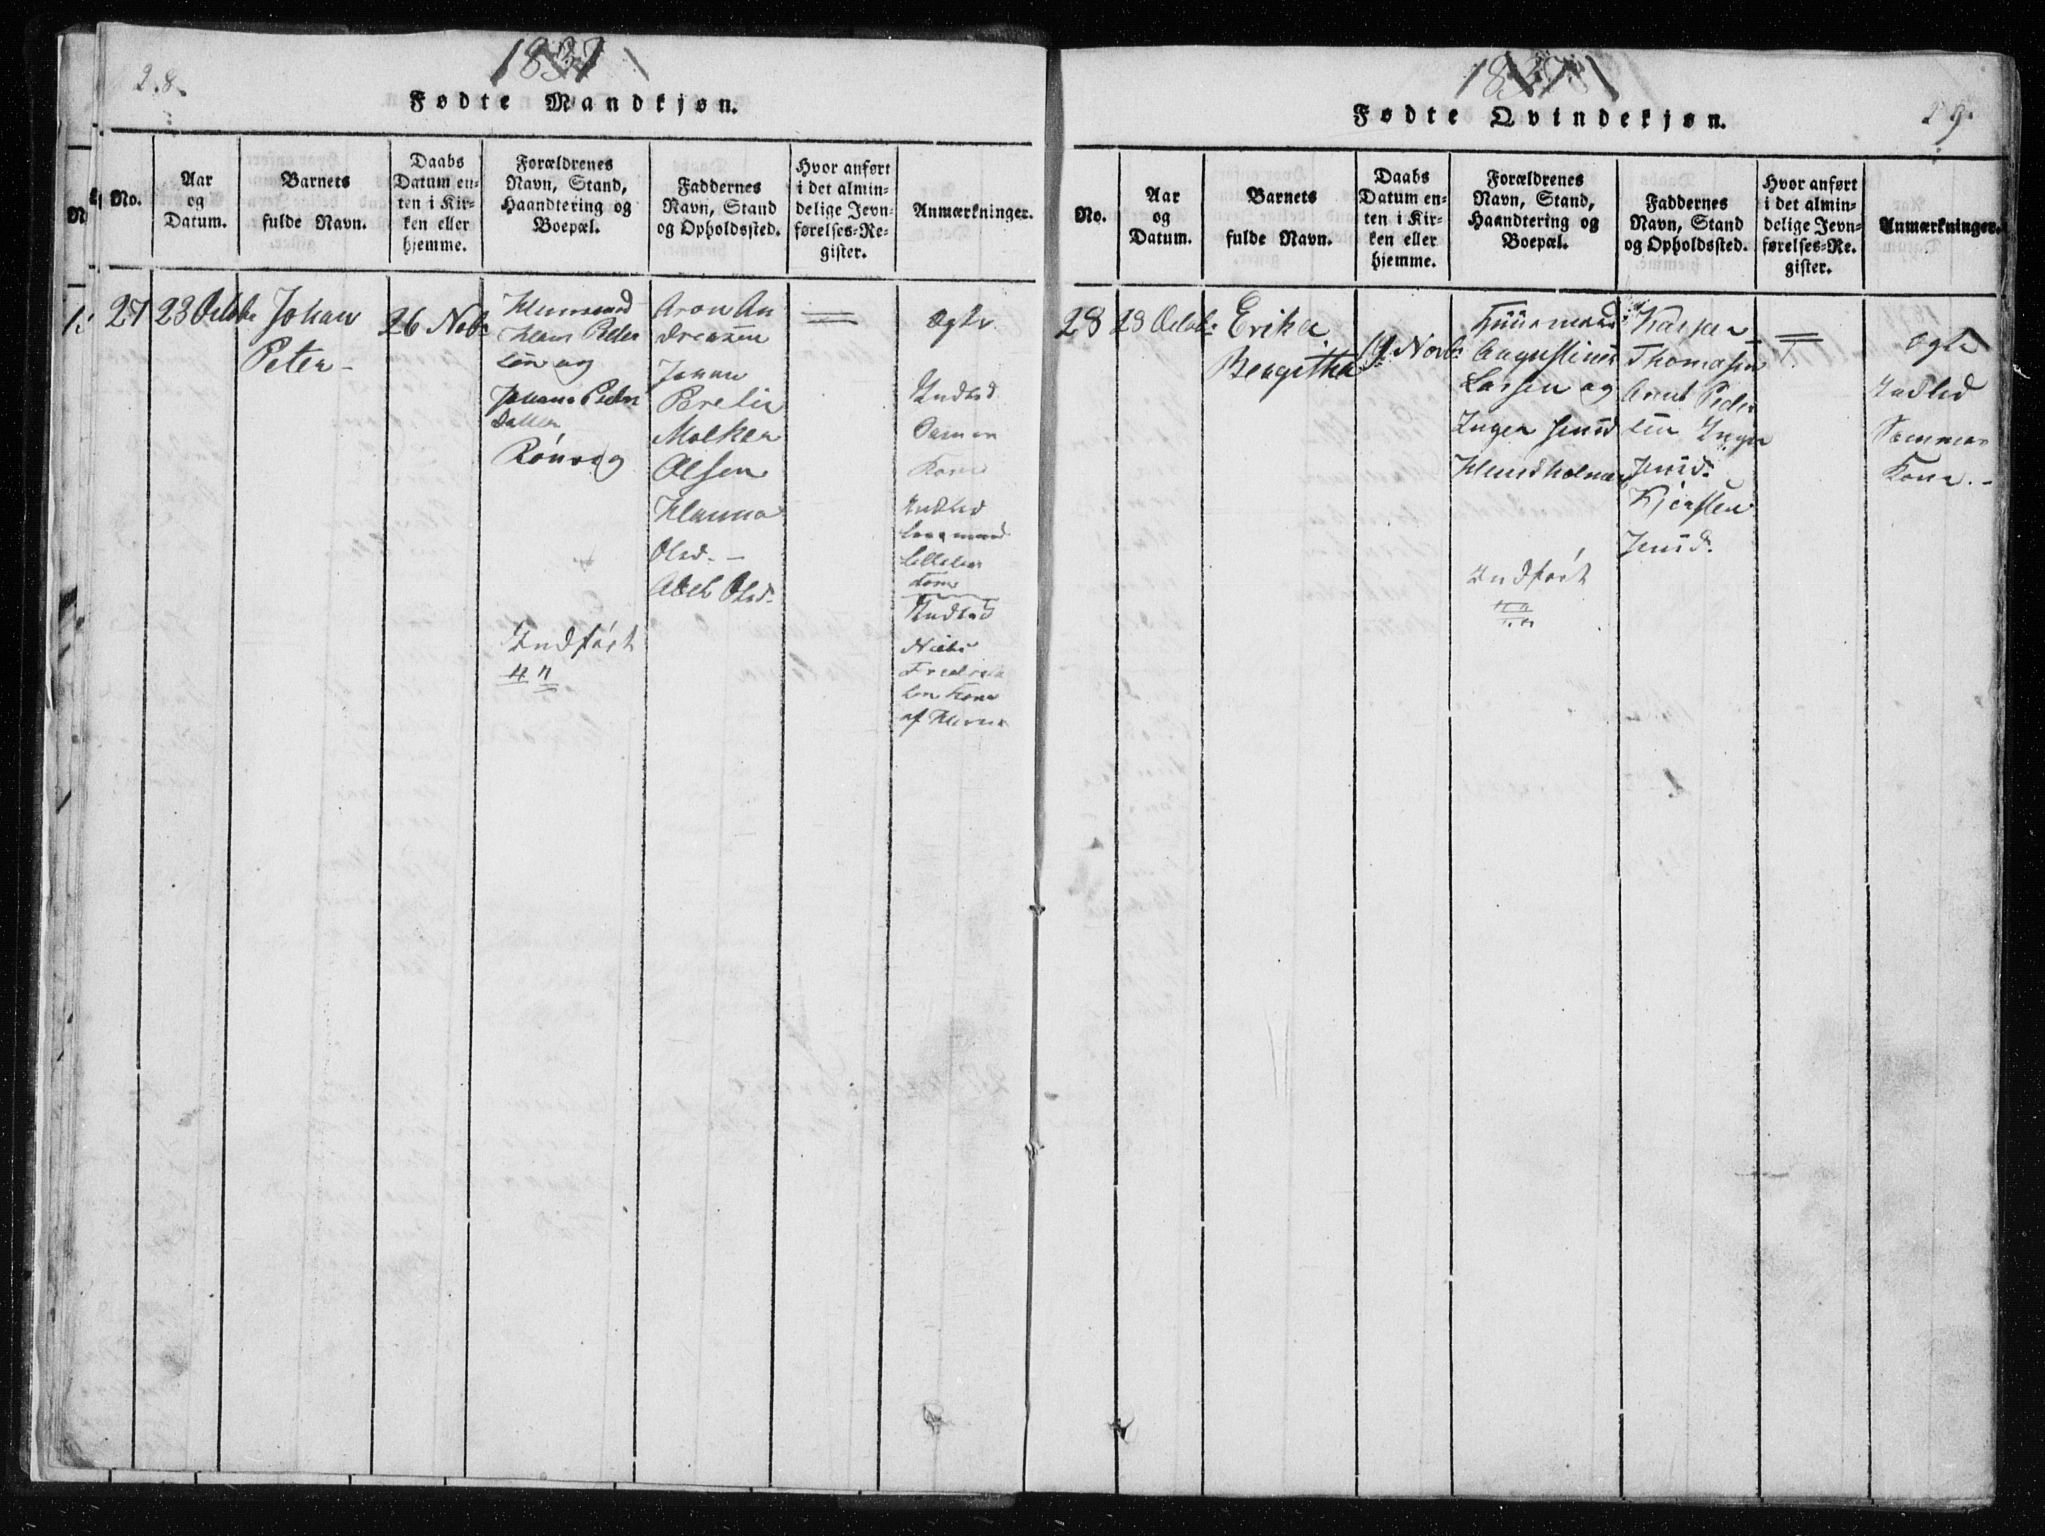 28.
1837
Fødte Mandkjøn.
No.
Aar
og
Datum.
Barnets
fulde Navn.
Daabs
Datum en-
ten i Kir-
ken eller
hjemme.
Forældrenes
Navn, Stand,
Haandtering og
Boepæl.
Faddernes
Navn, Stand
og Opholdssted.
Hvor anført
i det almin-
delige Jevn-
førelses-Re-
gister.
Anmærkninger.
27
23 Octbr
Johan
Peter
26 Nobr
Huusmand
Hans Peder
sen og
Johana Peders
Datter
Rönvig
Indført
Aron An
dreasen
Johan
Molker
Olsen
Hanna
Olsd.
Abel Olsd.
Ægte
Indtid
Kone
Indtid
Kone
Indtid
Niels
Fredrik
sen Kone
af
1837
Fødte Qvindekjøn.
29.
No.
Aar
og
Datum.
Barnets
fulde Navn.
Daabs
Datum en-
ten i Kir-
ken eller
hjemme.
Forældrenes
Navn, Stand,
Haandtering og
Boepæl.
Faddernes
Navn, Stand
og Opholdssted.
Hvor anført
i det almin-
delige Jevn-
førelses-Re-
gister.
Anmærkninger.
28
28 Octobr
Erika
Beagitha
Novbr
Huusmand
Augustinus
Larsen og
Inger Jensd
Hundholmen
Indført
Kasper
Thomasen
Arnt Peder
sen Inger
Jensd.
Kjersten
Jensd.
Ægte
Indtid
Sammes
Kone.